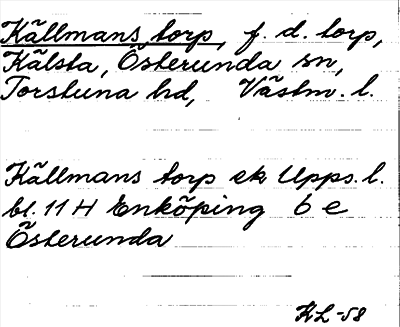 Källmans torp, f. d. torp,
Kälsta, Österunda sn,
Torstuna hd, Västm. l.
Källmans torp ek Upps. l.
bl. 11 H Enköping 6 e
Österunda
KL-58